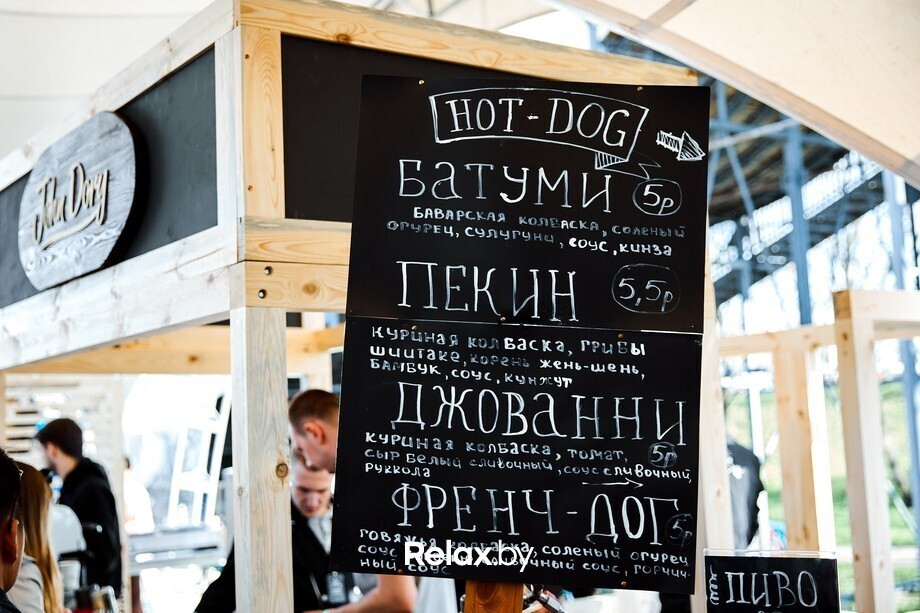 John Dory
HOT-DOG
БАТУМИ 5р
БАВАРСКАЯ КОЛБАСКА, СОЛЕНЫЙ
ОГУРЕЦ, СУЛУГУНИ, СОУС, КИНЗА
ПЕКИН 5,5р
КУРИНАЯ КОЛБАСКА, ГРИБЫ
ШИИТАКЕ, КОРЕНЬ ЖЕНЬ-ШЕНЬ,
БАМБУК, СОУС, КУНЖУТ
ДЖОВАННИ 5р
КУРИНАЯ КОЛБАСКА, ТОМАТ,
СЫР БЕЛЫЙ СЛИВОЧНЫЙ, СОУС СЛИВОЧНЫЙ,
РУККОЛА
ФРЕНЧ-ДОГ 5р
ГОВЯЖЬЯ КОЛБАСКА, СОЛЕНЫЙ ОГУРЕЦ,
СОУС СОУС, ГОРЧИЧ-
НЫЙ СОУС
Relax.by
ПИВО